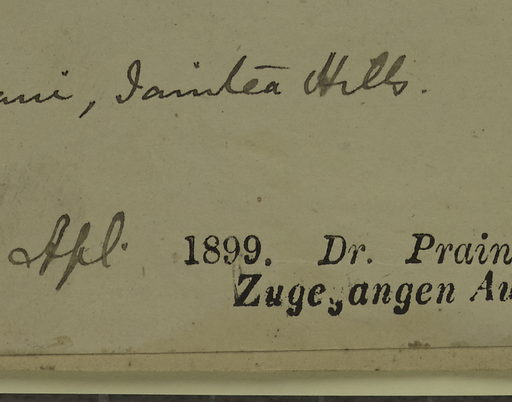 , Jaintea Hills.
Apl. 1899. Dr. Prain
Zugegangen Au